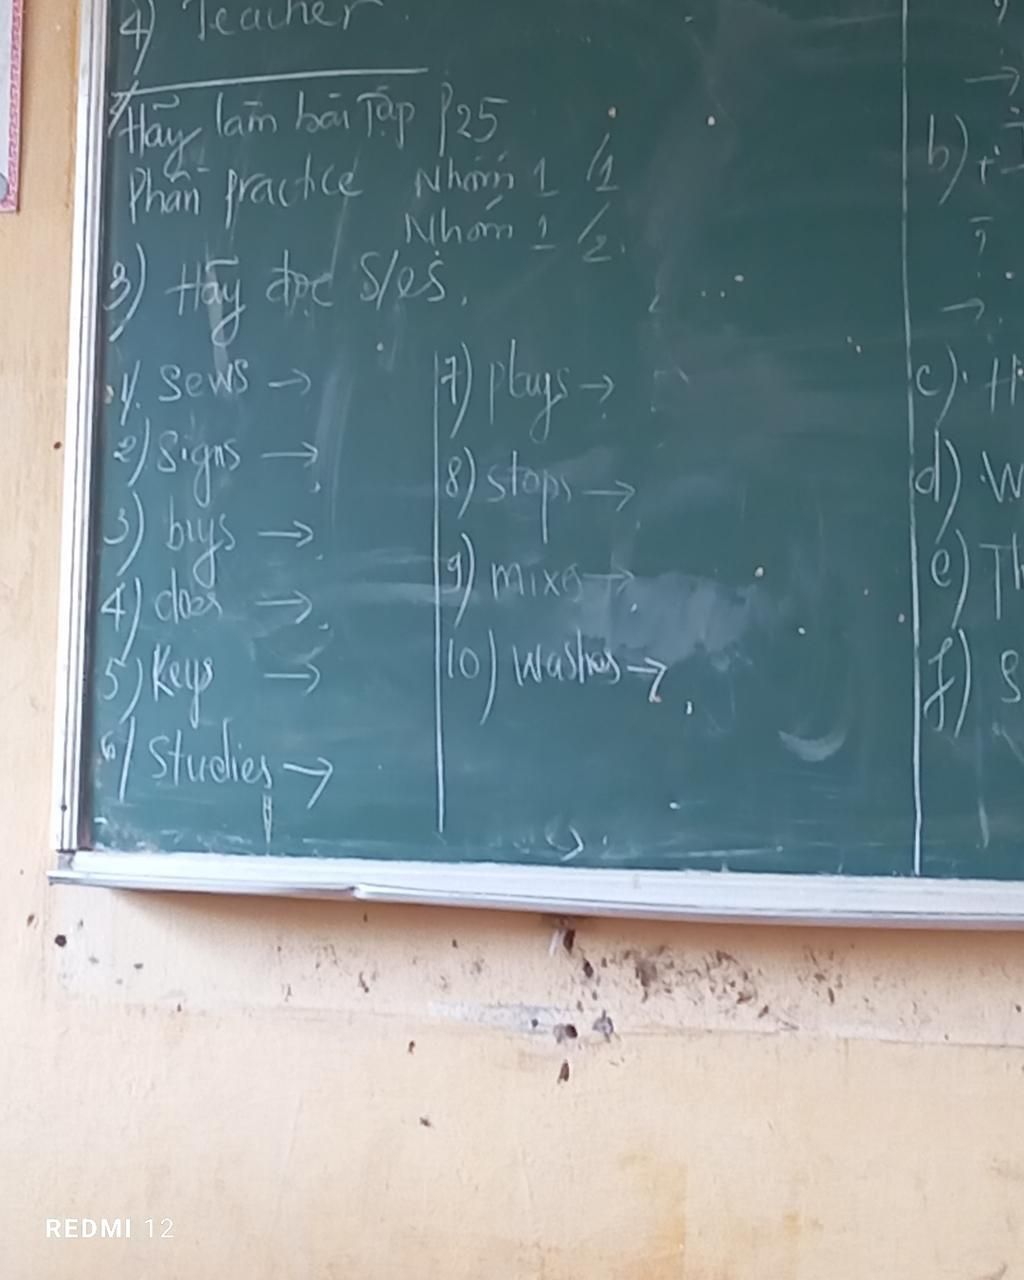 4) Teacher
Hãy làm bài Tập P25
Phần practice Nhóm 1 /1
Nhóm 1 /2
3) Hãy đọc S/es.
1/. Sews →
2) Signs →
3) buys →
4) does →
5) Keys →
6/ Studies →
7) plays →
8) stops →
9) mixes →
10) Washes →
→
b) +
?
→
c)
d)
e)
f)
REDMI 12